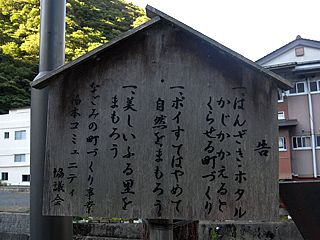 告
一、はんざき・ホタル
かじかかえると
くらせる町づくり
一、ポイすてはやめて
自然をまもろう
一、美しいふる里を
まもろう
なごみの町づくり事業
湯本コミュニティ
協議会